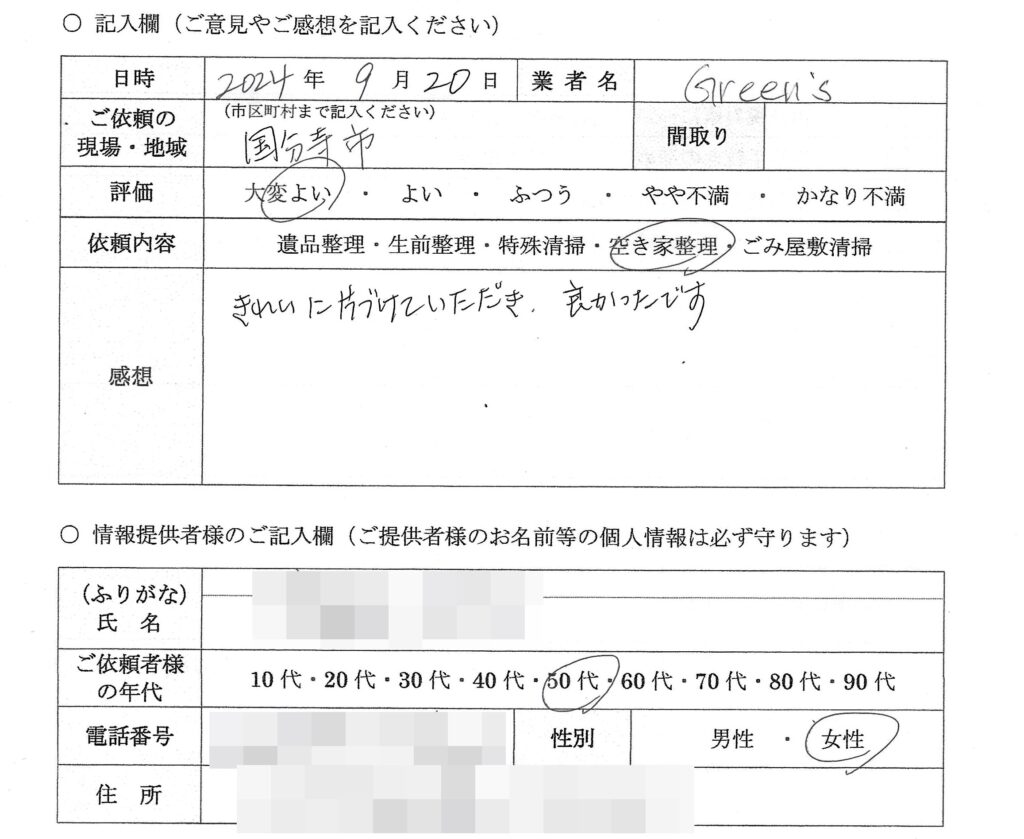 ○ 記入欄（ご意見やご感想を記入ください）
日時 2024 年 9 月 20 日 業者名 Green's
ご依頼の現場・地域 （市区町村まで記入ください） 間取り
国分寺市
評価 大変よい ・ よい ・ ふつう ・ やや不満 ・ かなり不満
依頼内容 遺品整理・生前整理・特殊清掃・空き家整理・ごみ屋敷清掃
感想 きれいに片づけていただき、良かったです
○ 情報提供者様のご記入欄（ご提供者様のお名前等の個人情報は必ず守ります）
（ふりがな）
氏 名
ご依頼者様の年代 10代・20代・30代・40代・50代・60代・70代・80代・90代
電話番号 性別 男性 ・ 女性
住 所